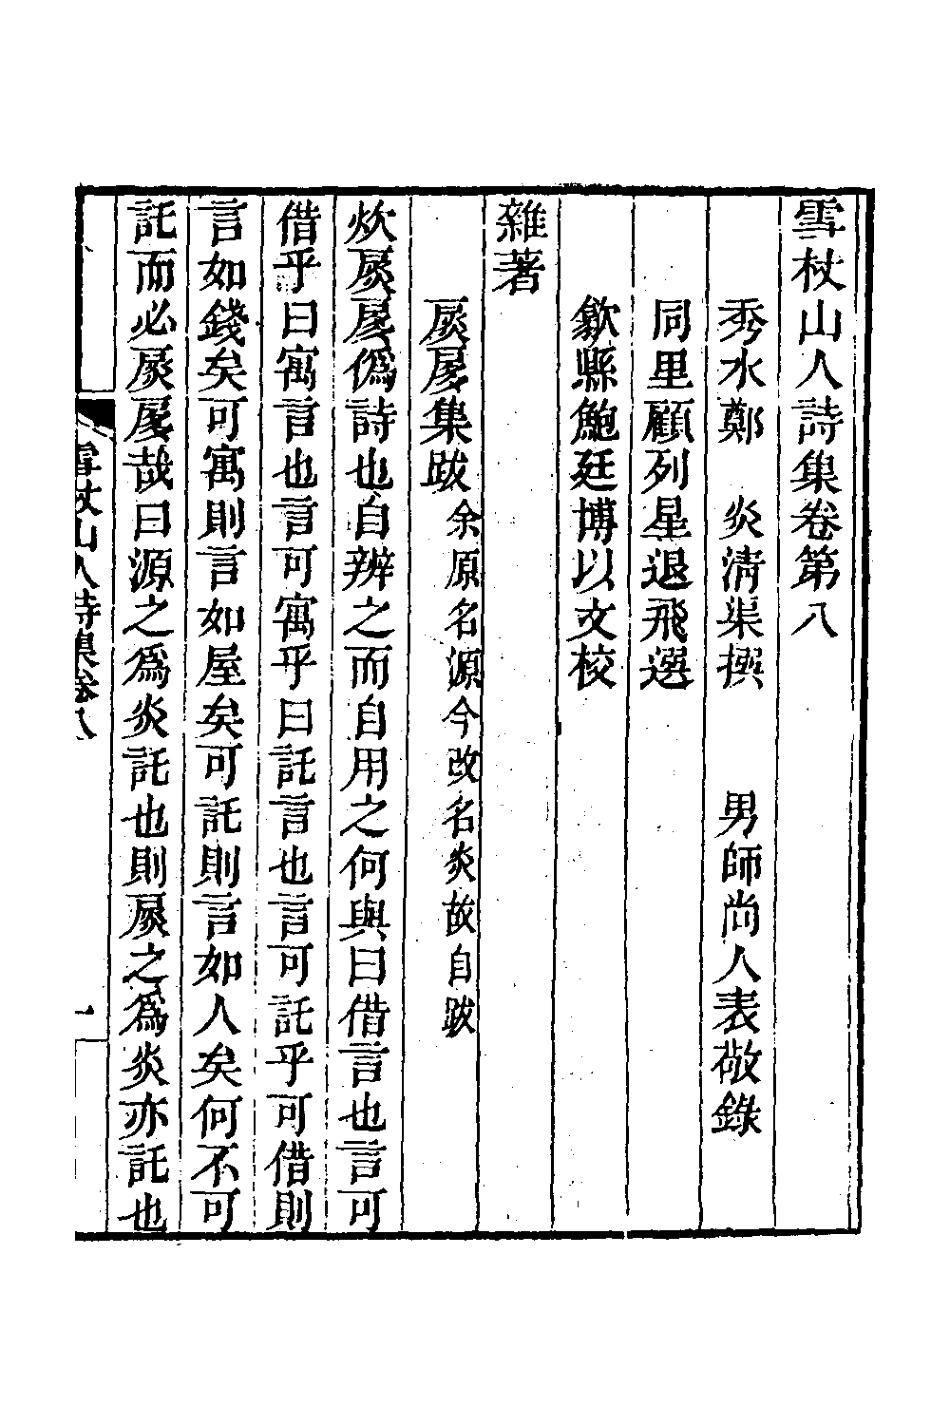 雪杖山人詩集卷第八
秀水鄭　炎清渠撰　　男師尚人表敬錄
同里顧列星退飛選
歙縣鮑廷博以文校
雜著
扊扅集跋余原名源今改名炎故自跋
炊扊扅僞詩也自辨之而自用之何與曰借言也言可
借乎曰寓言也言可寓乎曰託言也言可託乎可借則
言如錢矣可寓則言如屋矣可託則言如人矣何不可
託而必扊扅哉曰源之爲炎託也則扊之爲炎亦託也
雪杖山人詩集卷八
一